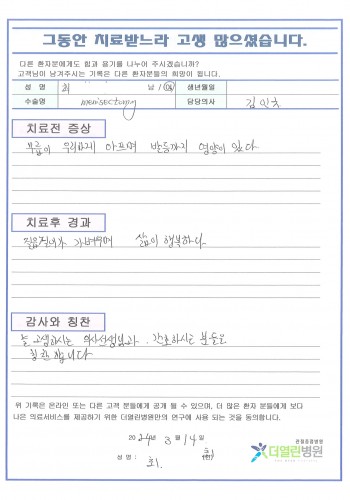 그동안 치료받느라 고생 많으셨습니다.
다른 환자분에게도 힘과 용기를 나누어 주시겠습니까?
고객님이 남겨주시는 기록은 다른 환자분들의 희망이 됩니다.
성 명 최 남 / 여 생년월일
수술명 담당의사 김
치료전 증상
무릎이 우리하게 아프며 발등까지 영향이 있다
치료후 경과
걸음걸이가 가벼우며 삶이 행복하다
감사와 칭찬
늘 고생하시는 의사선생님과 . 간호하시는 분들을
칭찬합니다
위 기록은 온라인 또는 다른 고객 분들에게 공개 될 수 있으며, 더 많은 환자 분들에게 보다
나은 의료서비스를 제공하기 위한 더열린병원만의 연구에 사용 되는 것을 동의합니다.
관절중점병원
더열린병원
3 월 14 일
성 명 : 최 최